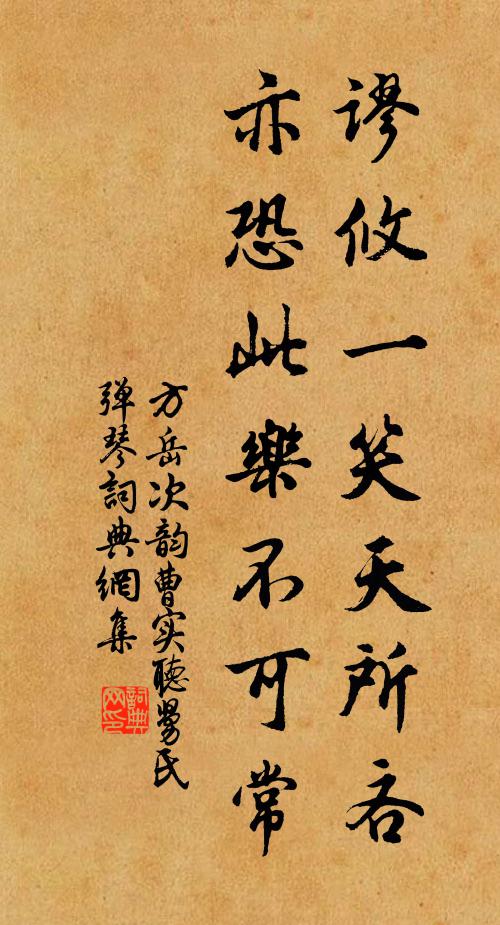 谬攸一笑天所吝
亦恐此樂不可常
方岳次韵曹实聽氏
弹琴詞典網集
詞典网印